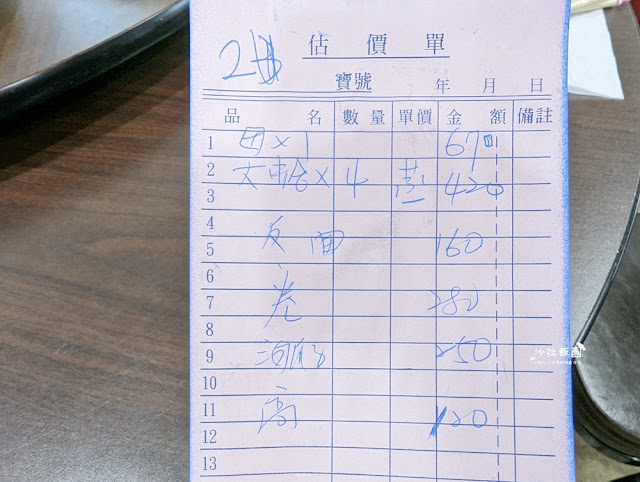 估價單
寶號 年 月 日
品名 數量 單價 金額 備註
1 ×1
2 文蛤×4 420
3
4
5 反面 160
6
7 卷 280
8
9 250
10
11 高 120
12
13
沙拉飯團